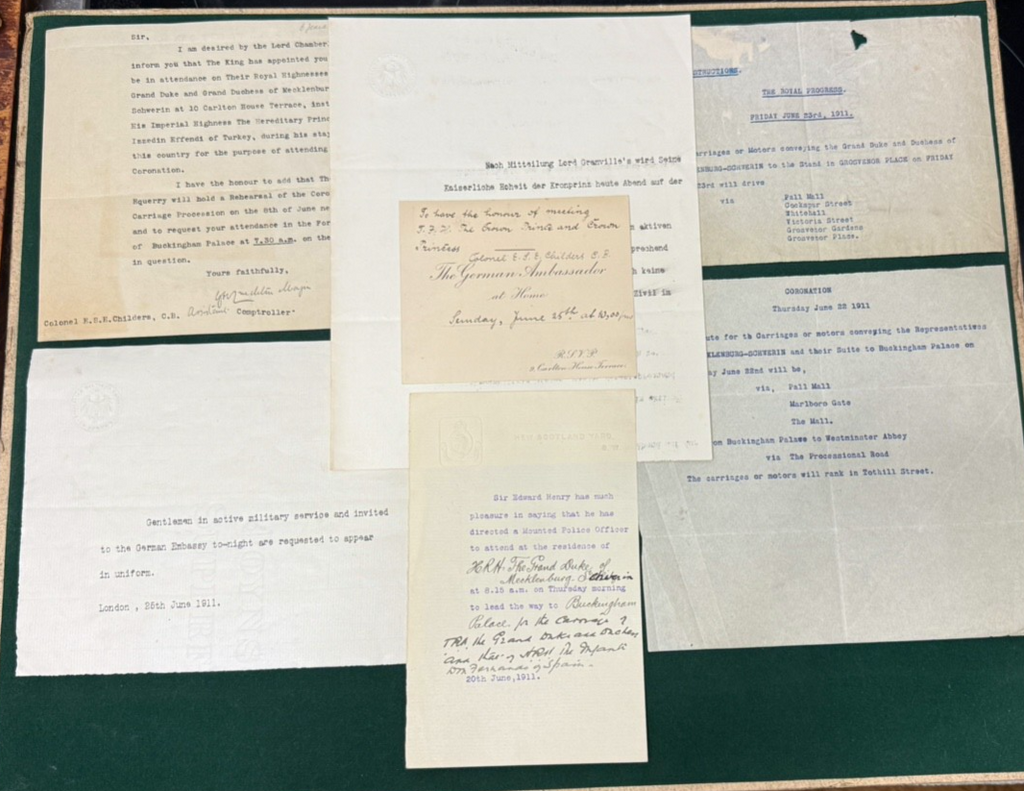 Sir,
I am desired by the Lord Chamber
inform you that The King has appointed you
be in attendance on Their Royal Highnesses
Grand Duke and Grand Duchess of Mecklenbur
Schwerin at 10 Carlton House Terrace, inst
His Imperial Highness The Hereditary Princ
Izzedin Effendi of Turkey, during his stay
this country for the purpose of attending
Coronation.
I have the honour to add that Th
Equerry will hold a Rehearsal of the Coro
Carriage Procession on the 8th of June ne
and to request your attendance in the For
of Buckingham Palace at 7.30 a.m. on the
in question.
Yours faithfully,
Major
Assistant Comptroller
Colonel E.S.E.Childers, C.B.
Nach Mitteilung Lord Granville's wird Seine
Kaiserliche Hoheit der Kronprinz heute Abend auf der
n aktiven
prechend
h keine
Zivil in
To have the honour of meeting
T.I.H. The Crown Prince and Crown
Princess
Colonel E.S.E. Childers C.B.
The German Ambassador
at Home
Sunday, June 25th at 10,00 pm
R.S.V.P.
9 Carlton House Terrace.
STRUCTIONS.
THE ROYAL PROGRESS.
FRIDAY JUNE 23rd, 1911.
arriages or Motors conveying the Grand Duke and Duchess of
NBURG-SCHWERIN to the Stand in GROSVENOR PLACE on FRIDAY
23rd will drive
via Pall Mall
Cockspur Street
Whitehall
Victoria Street
Grosvenor Gardens
Grosvenor Place.
CORONATION
Thursday June 22 1911
ute for th Carriages or motors conveying the Representatives
KLENBURG-SCHWERIN and their Suite to Buckingham Palace on
ay June 22nd will be,
via, Pall Mall
Marlboro Gate
The Mall.
om Buckingham Palace to Westminster Abbey
via The Processional Road
The carriages or motors will rank in Tothill Street.
Gentlemen in active military service and invited
to the German Embassy to-night are requested to appear
in uniform.
London , 25th June 1911.
NEW SCOTLAND YARD,
S.W.
Sir Edward Henry has much
pleasure in saying that he has
directed a Mounted Police Officer
to attend at the residence of
H.R.H. The Grand Duke of
Mecklenburg Schwerin
at 8.15 a.m. on Thursday morning
to lead the way to Buckingham
Palace for the carriage of
TRH the Grand Duke and Duchess
and that of HRH The Infanti
Dm Fernando of Spain -
20th June,1911.